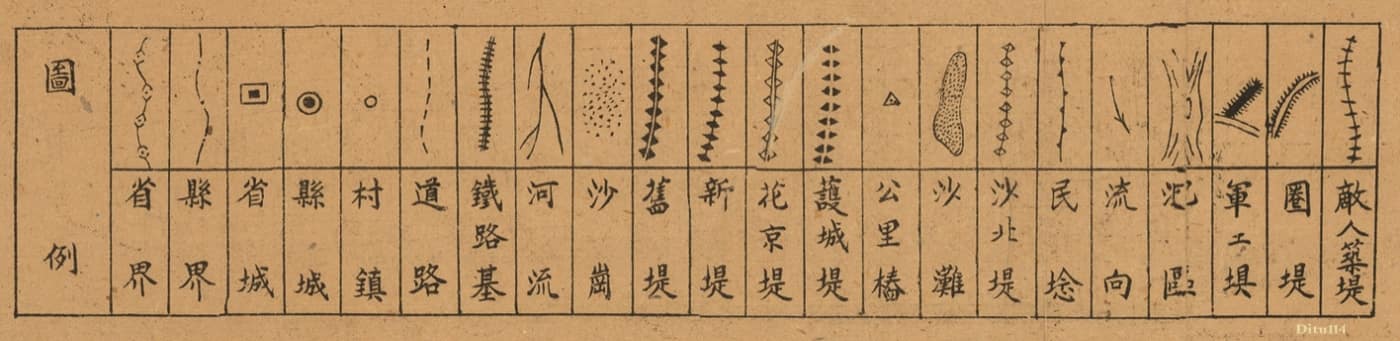 圖例
省界
縣界
省城
縣城
村鎮
道路
鐵路基
河流
沙崗
舊堤
新堤
花京堤
護城堤
公里樁
沙灘
沙北堤
民埝
流向
汜區
軍工垻
圈堤
敵人築堤
Ditu114